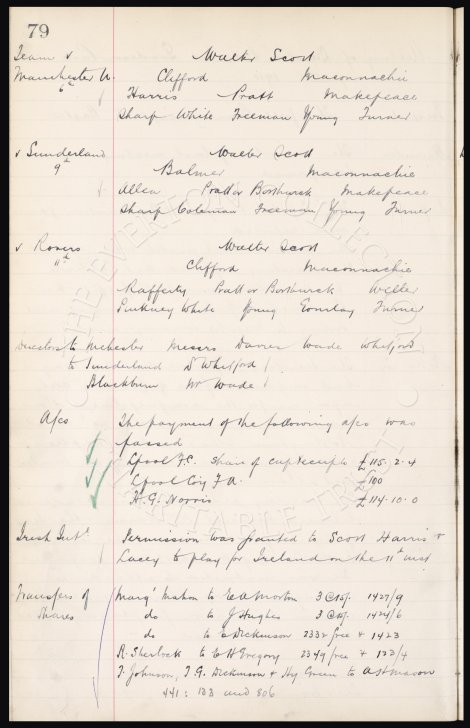 79
Team v Walter Scott
Manchester U. Clifford Maconnachie
6th Harris Pratt Makepeace
Sharp White Freeman Young Turner
v Sunderland Walter Scott
9th Balmer Maconnachie
Allen Pratt or Borthwick Makepeace
Sharp Coleman Freeman Young Turner
v Rovers Walter Scott
11th Clifford Maconnachie
Rafferty Pratt or Borthwick Weller
Pinkney White Young Turner
Directors to Manchester Messrs Davies Wade Whitford
to Sunderland D Whitford
Blackburn Mr Wade
A/cs The payment of the following a/cs was
passed
Lpool F.C. Share of cup receipts £115. 2. 4
Lpool Coy F.A. £100
H. G. Norris £114. 10. 0
Irish Intl Permission was granted to Scott Harris &
Lacey to play for Ireland on the 11th inst
Transfers of Margt Mahon to C A Morton 3 @ 15/- 1427/9
Shares do to J Hughes 3 @ 15/- 1424/6
do to E Dickinson 2332 free & 1423
R. Sherlock to C H Gregory 2349 free & 133/4
T. Johnson, T. G. Dickinson & Hy Green to A H Mason
441 : 133 and 806
THE EVERTON COLLECTION
CHARITABLE TRUST